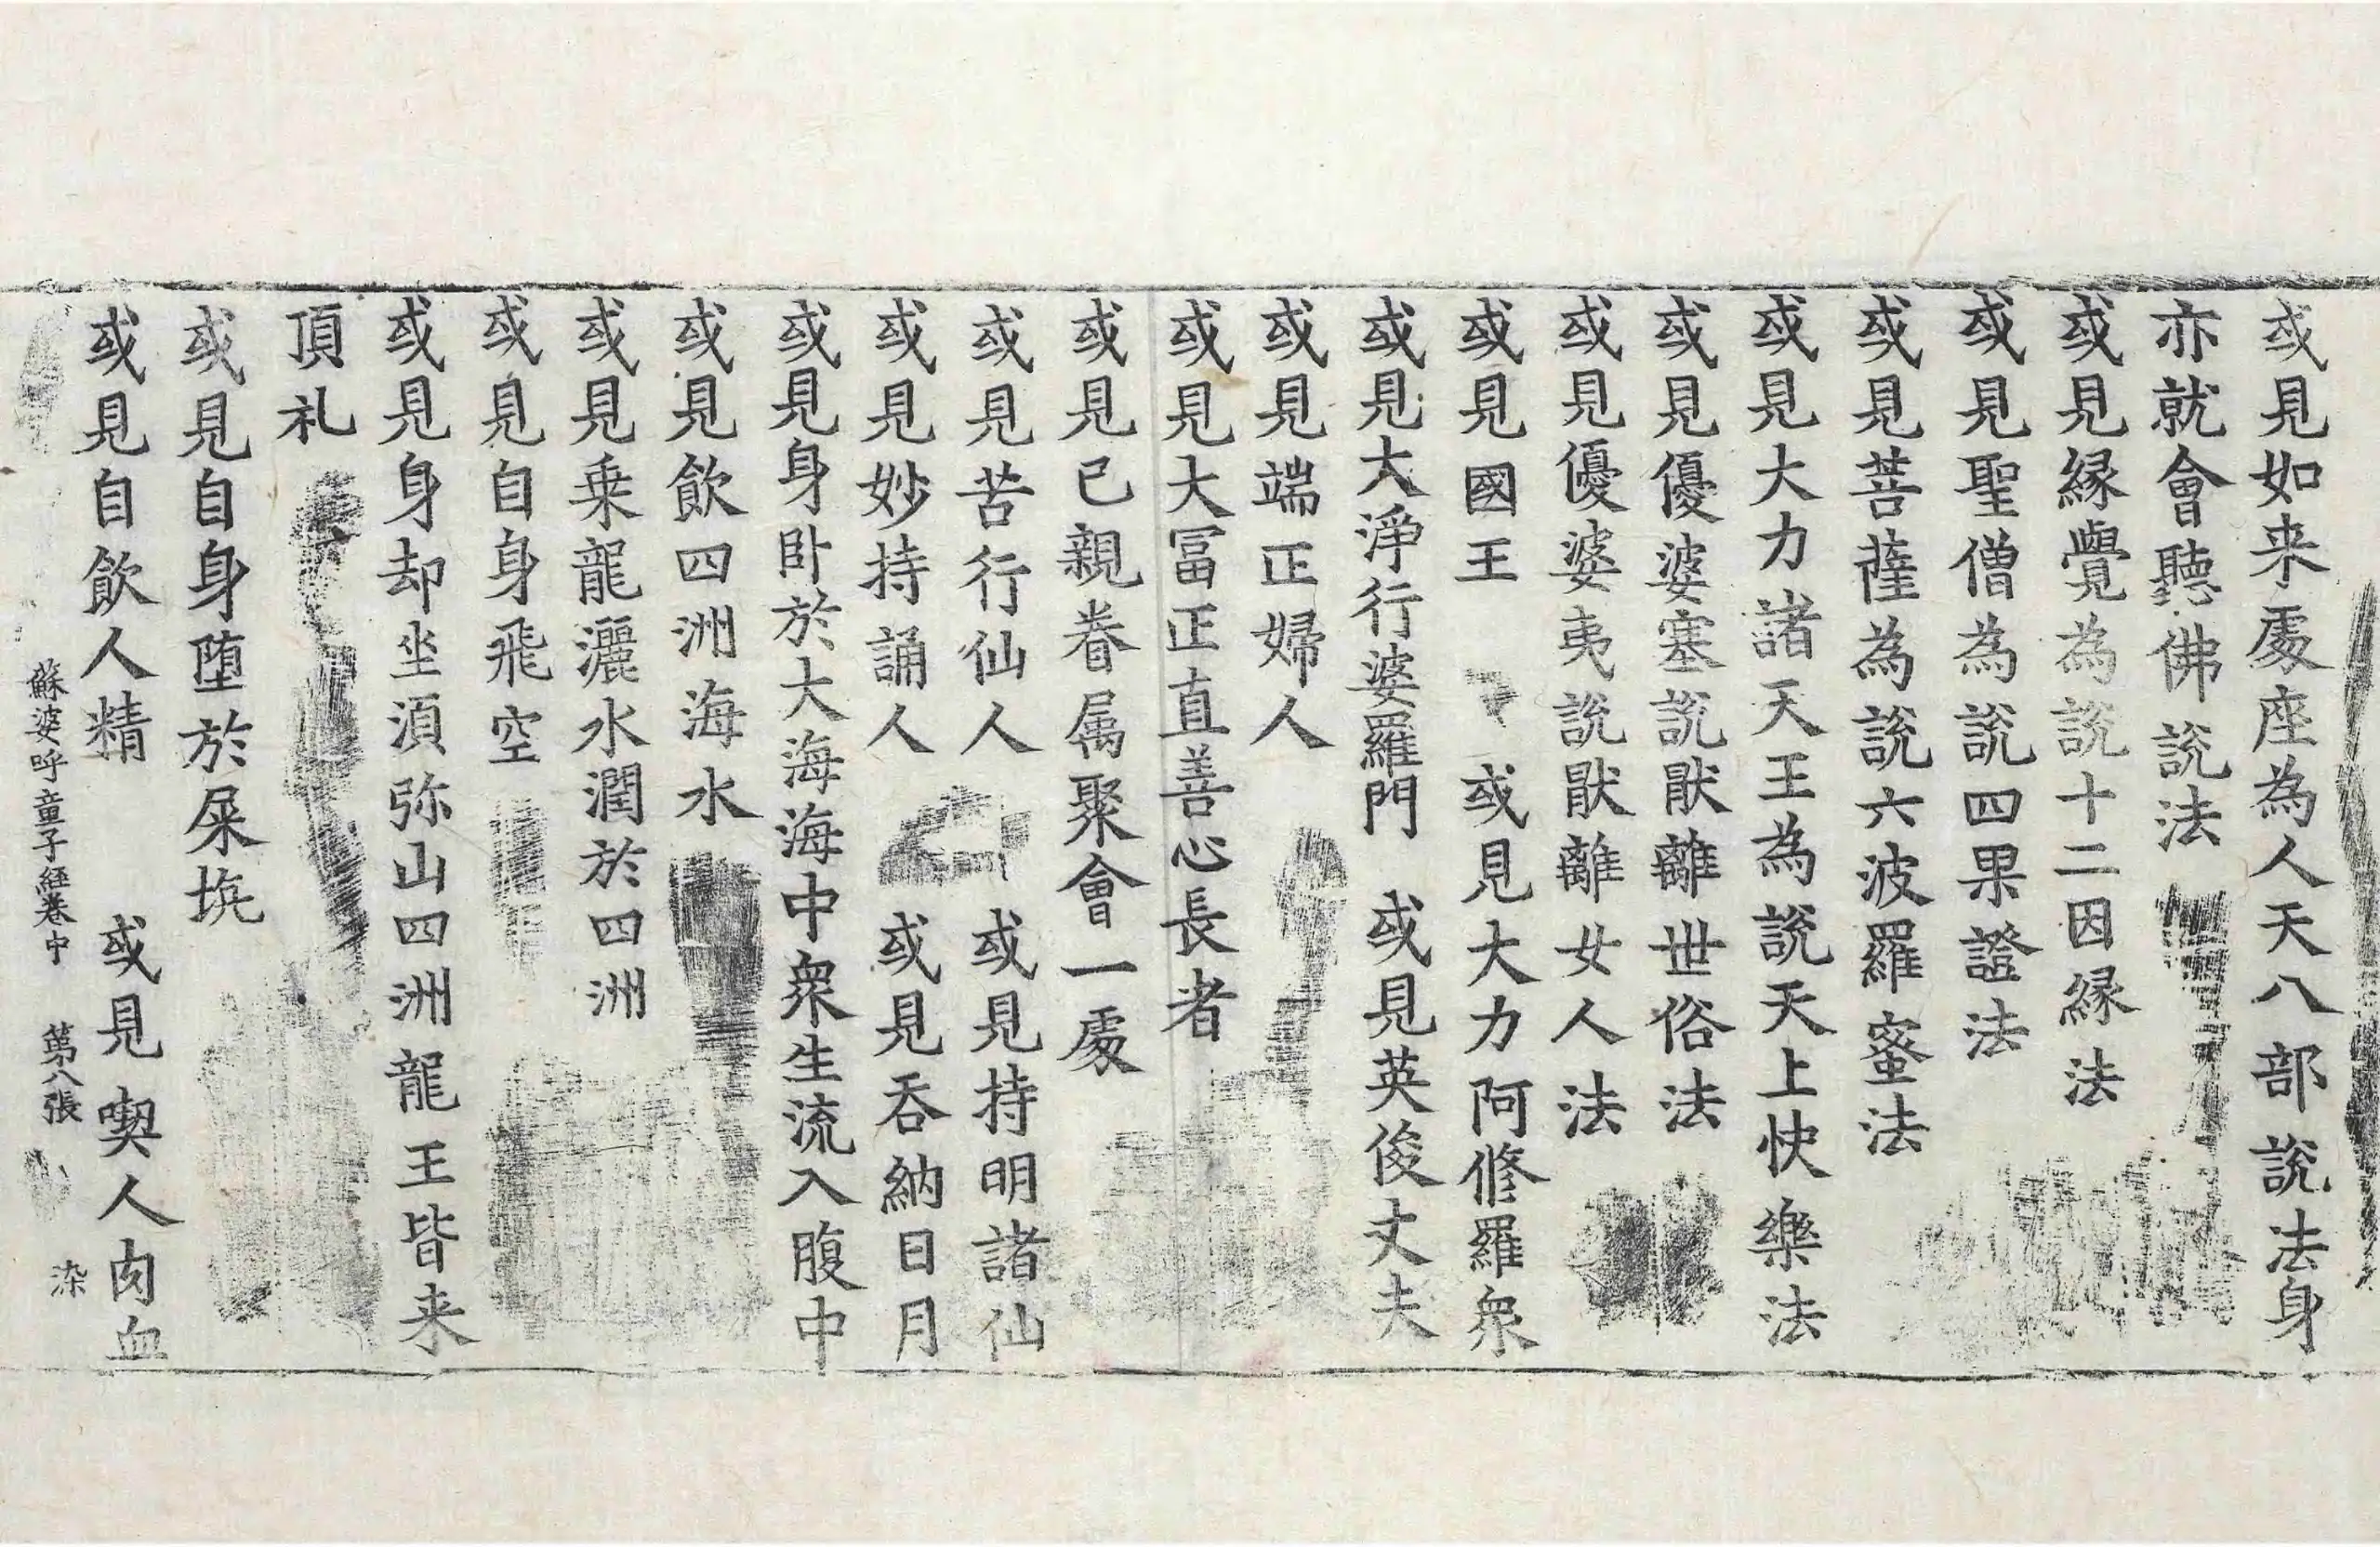 或見如来處座為人天八部說法身
亦就會聽佛說法
或見縁覺為說十二因縁法
或見聖僧為說四果證法
或見菩薩為說六波羅蜜法
或見大力諸天王為說天上快樂法
或見優婆塞說猒離世俗法
或見優婆夷說猒離女人法
或見國王　或見大力阿修羅衆
或見大淨行婆羅門　或見英俊丈夫
或見端正婦人
或見大冨正直善心長者
或見已親眷属聚會一處
或見苦行仙人　或見持明諸仙
或見妙持誦人　或見吞納日月
或見身卧於大海海中衆生流入腹中
或見飲四洲海水
或見乗龍灑水潤於四洲
或見自身飛空
或見身却坐湏弥山四洲龍王皆来
頂礼
或見自身堕於屎坑
或見自飲人精　或見喫人肉血
蘇婆呼童子経卷中　第八張　染